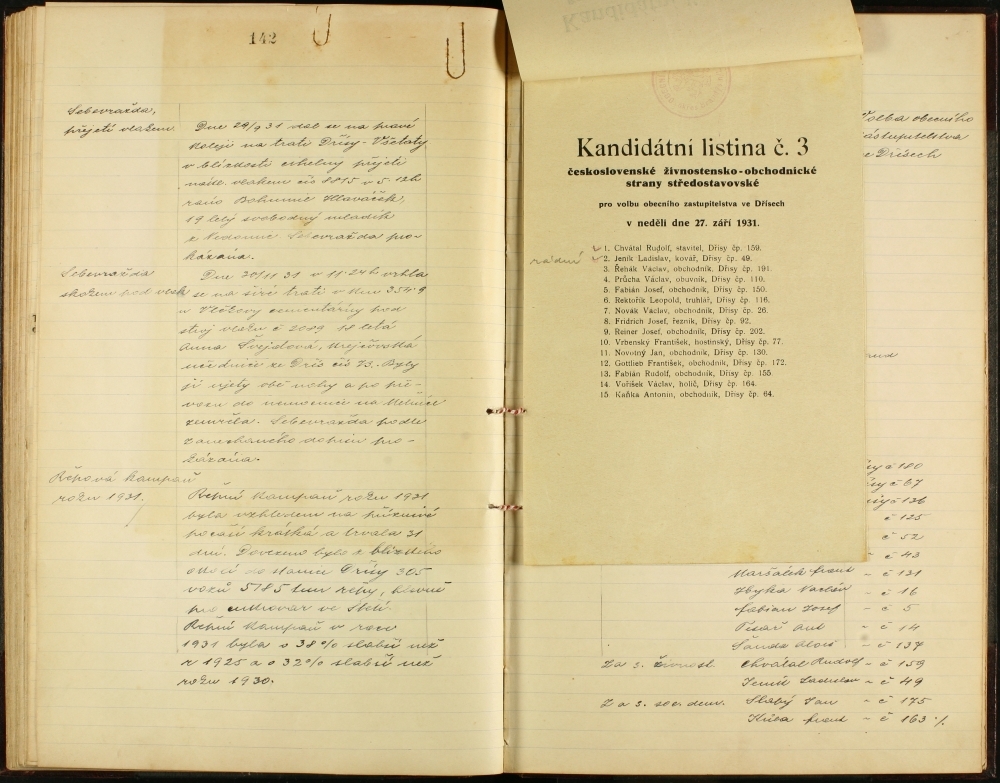 142
Sebevražda,
přejetí vlakem
Dne 29/9 31 dal se na pravé
koleji na trati Dřísy - Všetaty
v blízkosti cihelny přejeti
nákl. vlakem čís 8815 v 5.12h
ráno Bohumil Hlaváček,
19 letý svobodný mladík
z Nedomic Sebevražda pro-
kázána.
Sebevražda
skokem pod vlak
Dne 20/11 31 v 11.24 h vrhla
se na širé trati v km 354.9
u cementárny pod
stroj vlaku č 2089 18 letá
Anna Švejdová,
ze Dřís čís 73. Byly
jí ujety obě nohy a po pře-
vozu do nemocnice na Mělníce
zemřela. Sebevražda podle
zanechaného dopisu pro-
kázána.
Řepová kampaň
roku 1931.
Řepní kampaň roku 1931
byla vzhledem na příznivé
počasí krátká a trvala 31
dní. Dovezeno bylo z blízkého
okolí do stanice Dřísy 305
vozů 5185 tun řepy, hlavně
pro cukrovar ve
Řepní kampaň v roce
1931 byla o 38% slabší než
r 1925 a o 32% slabší než
roku 1930.
Kandidátní listina č. 3
československé živnostensko-obchodnické
strany středostavovské
pro volbu obecního zastupitelstva ve Dřísech
v neděli dne 27. září 1931.
řádní
1. Chvátal Rudolf, stavitel, Dřísy čp. 159.
2. Jeník Ladislav, kovář, Dřísy čp. 49.
3. Řehák Václav, obchodník, Dřísy čp. 191.
4. Průcha Václav, obuvník, Dřísy čp. 110.
5. Fabián Josef, obchodník, Dřísy čp. 150.
6. Rektořík Leopold, truhlář, Dřísy čp. 116.
7. Novák Václav, obchodník, Dřísy čp. 26.
8. Fridrich Josef, řezník, Dřísy čp. 92.
9. Reiner Josef, obchodník, Dřísy čp. 202.
10. Vrbenský František, hostinský, Dřísy čp. 77.
11. Novotný Jan, obchodník, Dřísy čp. 130.
12. Gottlieb František, obchodník, Dřísy čp. 172.
13. Fabián Rudolf, obchodník, Dřísy čp. 155.
14. Voříšek Václav, holič, Dřísy čp. 164.
15. Kaňka Antonín, obchodník, Dřísy čp. 64.
Volba obecného
zástupitelstva
ve Dřísech
č 180
č 67
č 136
č 125
č 52
č 43
Maršálek Frant - č 131
Zbyka Václav - č 16
Fabian Josef - č 5
Tesař Ant - č 14
Šanda Alois - č 137
Za s. živnost. Chvátal Rudolf - č 159
Jeník Ladislav - č 49
Za s. soc. dem. Slabý Jan - č 175
Kůra Frant - č 163 ./.